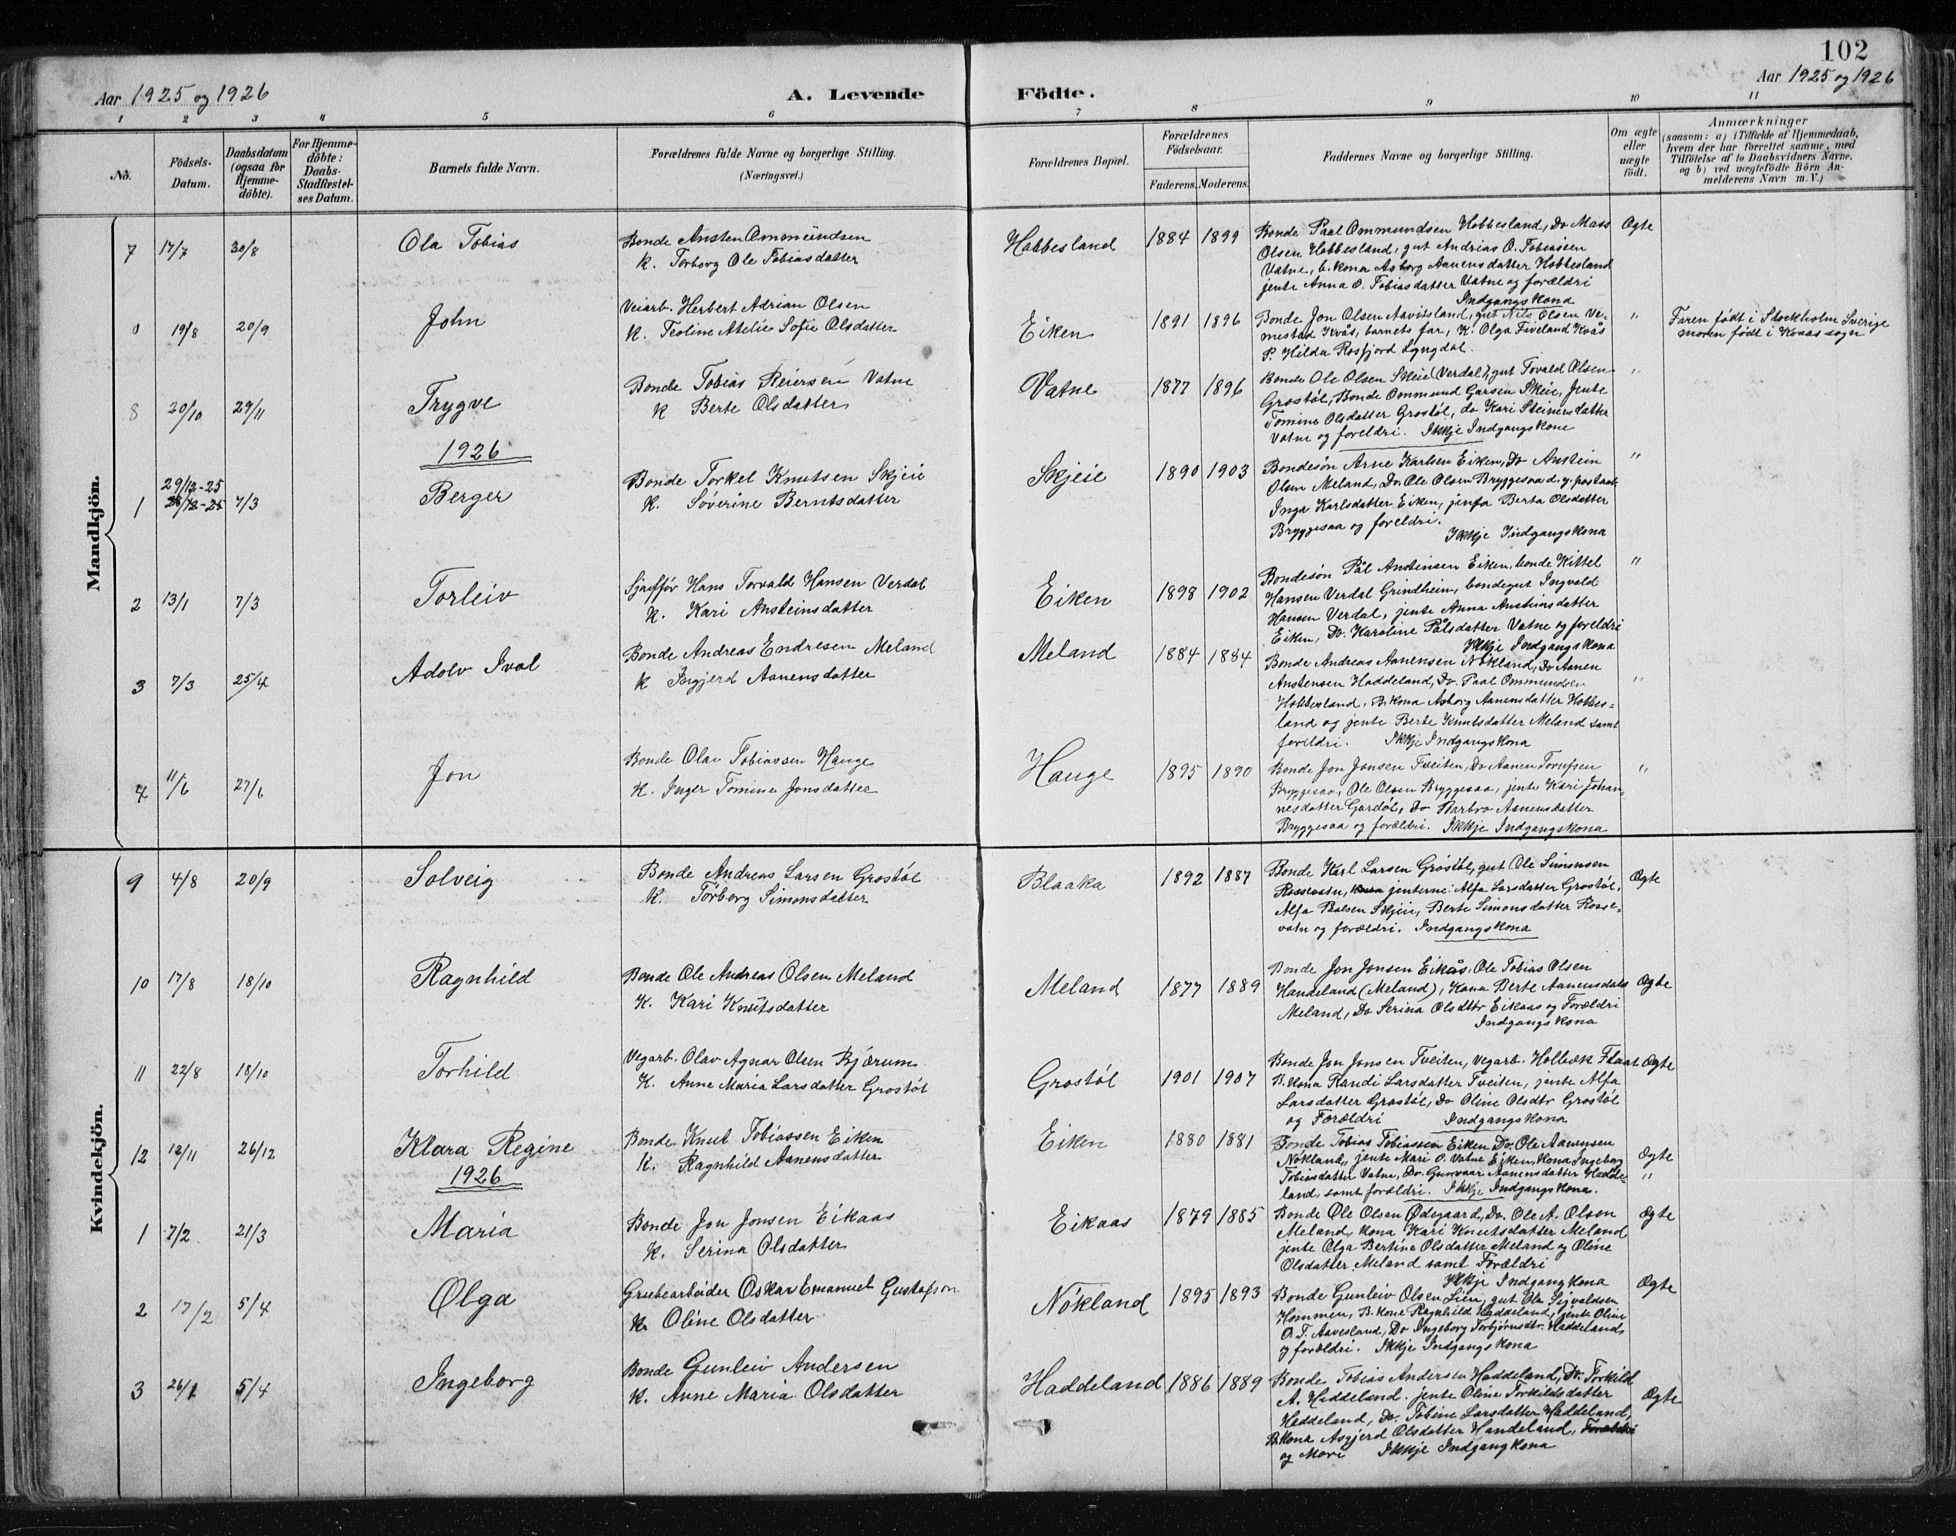 102
Aar 1925 og 1926
A. Levende
Födte.
Aar 1925 og 1926
1 2 3 4 5 6 7 8 9 10 11
No.
Födsels-Datum.
Daabsdatum (ogsaa for Hjemme-döbte).
For Hjemme-döbte: Daabs-Stadfæstel-ses Datum.
Barnets fulde Navn.
Forældrenes fulde Navne og borgerlige Stilling.
(Næringsvei.)
Forældrenes Bopæl.
Forældrenes Födselsaar.
Faderens. Moderens.
Faddernes Navne og borgerlige Stilling.
Om ægte eller uægte födt.
Anmærkninger
(saasom: a) i Tilfælde af Hjemmedaab, hvem der har forrettet samme, med Tilföielse af to Daabsvidners Navne, og b) ved uægtefödte Börn Anmelderens Navn m. V.)
Mandkjön.
7 17/7 30/8 Ola Tobias
Bonde Ansten Ommundsen
K. Torborg Ole Tobiasdatter
Hobbesland 1884 1899
Bonde Paal Ommundsen Hobbesland, Do Mass
Olsen Hobbesland, gut Andrias O. Tobiassen
Vatne, b. kona Asborg Aanensdatter Hobbesland
jente Anna O. Tobiasdatter Vatne og forældri
Indgangskona
Ægte
19/8 20/9 John
Veiarb. Herbert Adrian Olsen
K. Teoline Atelie Sofie Olsdatter
Eiken 1891 1896
Bonde Jon Olsen Aavitsland, gut Nils Olsen Ve-
mestad Kvås, barnets far, K. Olga Fiveland Kvås
P. Hilda Rosfjord Lyngdal.
"
Faren født i Stockholm Sverige
moren født i Kvaas sogn
8 20/10 29/11 Trygve
Bonde Tobias Reiersen Vatne
K Berte Olsdatter
Vatne 1877 1896
Bonde Ole Olsen Skeie (Verdal), gut Torvald Olsen
Grostøl, Bonde Ommund Garsen Skeie, Jente
Tomine Olsdatter Grostøl, do Kari Steinersdatter
Vatne og foreldri. Ikkje Indgangskone
"
1926
1 29/12-25 7/3 Berger
Bonde Torkel Knutsen Skjeie
K. Søverine Berntsdatter
Skjeie 1890 1903
Bondesøn Arne Karlsen Eiken, Do Anstein
Olsen Meland, Do. Ole Olsen Bryggesaa d.y.
Inga Karlsdatter Eiken, jenta Berta Olsdatter
Bryggesaa og foreldri.
Ikkje Indgangskona
"
2 13/1 7/3 Torleiv
Sjaffør Hans Torvald Hansen Verdal
K. Kari Ansteinsdatter
Eiken 1898 1902
Bondesøn Pål Anstinsen Eiken, bonde Kittel
Hansen Verdal Grindheim, bondegut Ingvald
Hansen Verdal, jente Anna Anstinsdatter
Eiken, Do. Karoline Pålsdatter Vatne og foreldri
Ikkje Indgangskona
"
3 7/3 25/4 Adolv Ival
Bonde Andreas Endresen Meland
K Ingjerd Aanensdatter
Meland 1884 1884
Bonde Andreas Aanensen Nøkland, Do Aanen
Anstensen Haddeland, Do. Paal Ommundsen
Hobbesland, B.kona Asborg Aanensdatter Hobbes-
land og jente Berte Knutsdatter Meland samt
foreldri. Ikkje Indgangskona
"
4 11/6 27/6 Jon
Bonde Olav Tobiassen Hauge
K. Inger Tomine Jonsdatter
Hauge 1895 1890
Bonde Jon Jonsen Tveiten, Do Aanen
Bryggesaa, Ole Olsen Bryggesaa, jente Kari Johan-
nesdatter Gardøl, Do Barbro Aanensdatter
Bryggesaa og forældri. Ikkje Indgangskona
"
Kvindekjön.
9 4/8 20/9 Solveig
Bonde Andreas Larsen Grostøl
K. Tørborg Simonsdatter
Blaaka 1892 1887
Bonde Karl Larsen Grostøl, gut Ole Simonsen
Rossevatn, jenterne: Alfa Larsdatter Grostøl,
Alfa Paalsen Skjeie, Berte Simonsdatter Rosse-
vatn og forældri. Indgangskona
Ægte
10 17/8 18/10 Ragnhild
Bonde Ole Andreas Olsen Meland
K. Kari Knutsdatter
Meland 1877 1889
Bonde Jon Jonsen Eikås, Ole Tobias Olsen
Handeland (Meland), Kona Berte Aanensdatr
Meland, Do Serina Olsdtr Eikaas og Forældri
Indgangskona
Ægte
11 22/8 18/10 Torhild
Vegarb. Olav Agnar Olsen Bjærum
K. Anne Maria Larsdatter Grostøl
Grostøl 1901 1907
Bonde Jon Jonsen Tveiten, vegarb. Holbæk Flaat
B.kona Randi Larsdatter Tveiten, jente Alfa
Larsdatter Grostøl, Do Oline Olsdtr Grostøl
og Forældri Indgangskona
Ægte
12 12/11 26/12 Klara Regine
Bonde Knut Tobiassen Eiken
K. Ragnhild Aanensdatter
Eiken 1880 1881
Bonde Tobias Tobiassen Eiken Do, Ole Aanensen
Nøkland, jente Mari O. Vatne Eiken, Kona Ingeborg
Tobiasdatter Vatne, Do. Gunvaar Aanensdatter Hadde-
land, samt forældri. Ikkje Indgangskona.
Ægte
"
1926
1 7/2 21/3 Maria
Bonde Jon Jonsen Eikaas
K. Serina Olsdatter
Eikaas 1879 1885
Bonde Ole Olsen Ødegaard, Do. Ole A. Olsen
Meland, kona Kari Knutsdatter Meland
jente Olga Bertina Olsdatter Meland og Oline
Olsdatter Meland samt Forældri
Ikkje Indgangkona
Ægte
2 17/2 5/4 Olga
Grubearbeider Oskar Emanuel Gustafson
K. Oline Olsdatter
Nøkland 1895 1893
Bonde Gunleiv Olsen Lien, gut Ole Sigvaldsen
Hommen, B.kone Ragnhild Haddeland, jente Oline
O.T. Aavesland, Do Ingeborg Torbjørnsdtr. Haddeland,
og forældri. Ikkje Indgangskona
Ægte
3 26/1 5/4 Ingeborg
Bonde Gunleiv Andersen
K. Anne Maria Olsdatter
Haddeland 1886 1889
Bonde Tobias Andersen Haddeland, Do. Torkild
A. Haddeland. jente Oline Torkildsdatter
Haddeland, Do. Tobine Larsdatter Haddeland,
B.kona Asgjerd Olsdatter Handeland, Forældri
og Mori Ikkje Indgangkona
Ægte